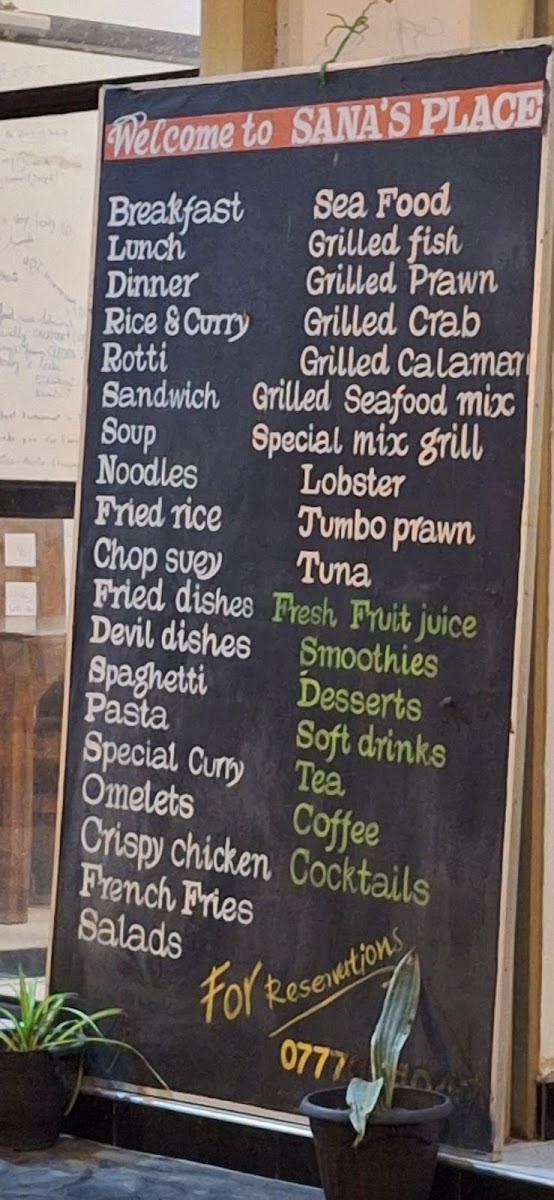 Welcome to SANA'S PLACE
Breakfast
Lunch
Dinner
Rice & Curry
Rotti
Sandwich
Soup
Noodles
Fried rice
Chop suey
Fried dishes
Devil dishes
Spaghetti
Pasta
Special Curry
Omelets
Crispy chicken
French Fries
Salads
Sea Food
Grilled fish
Grilled Prawn
Grilled Crab
Grilled Calamari
Grilled Seafood mix
Special mix grill
Lobster
Jumbo prawn
Tuna
Fresh Fruit juice
Smoothies
Desserts
Soft drinks
Tea
Coffee
Cocktails
For Reservations
0777